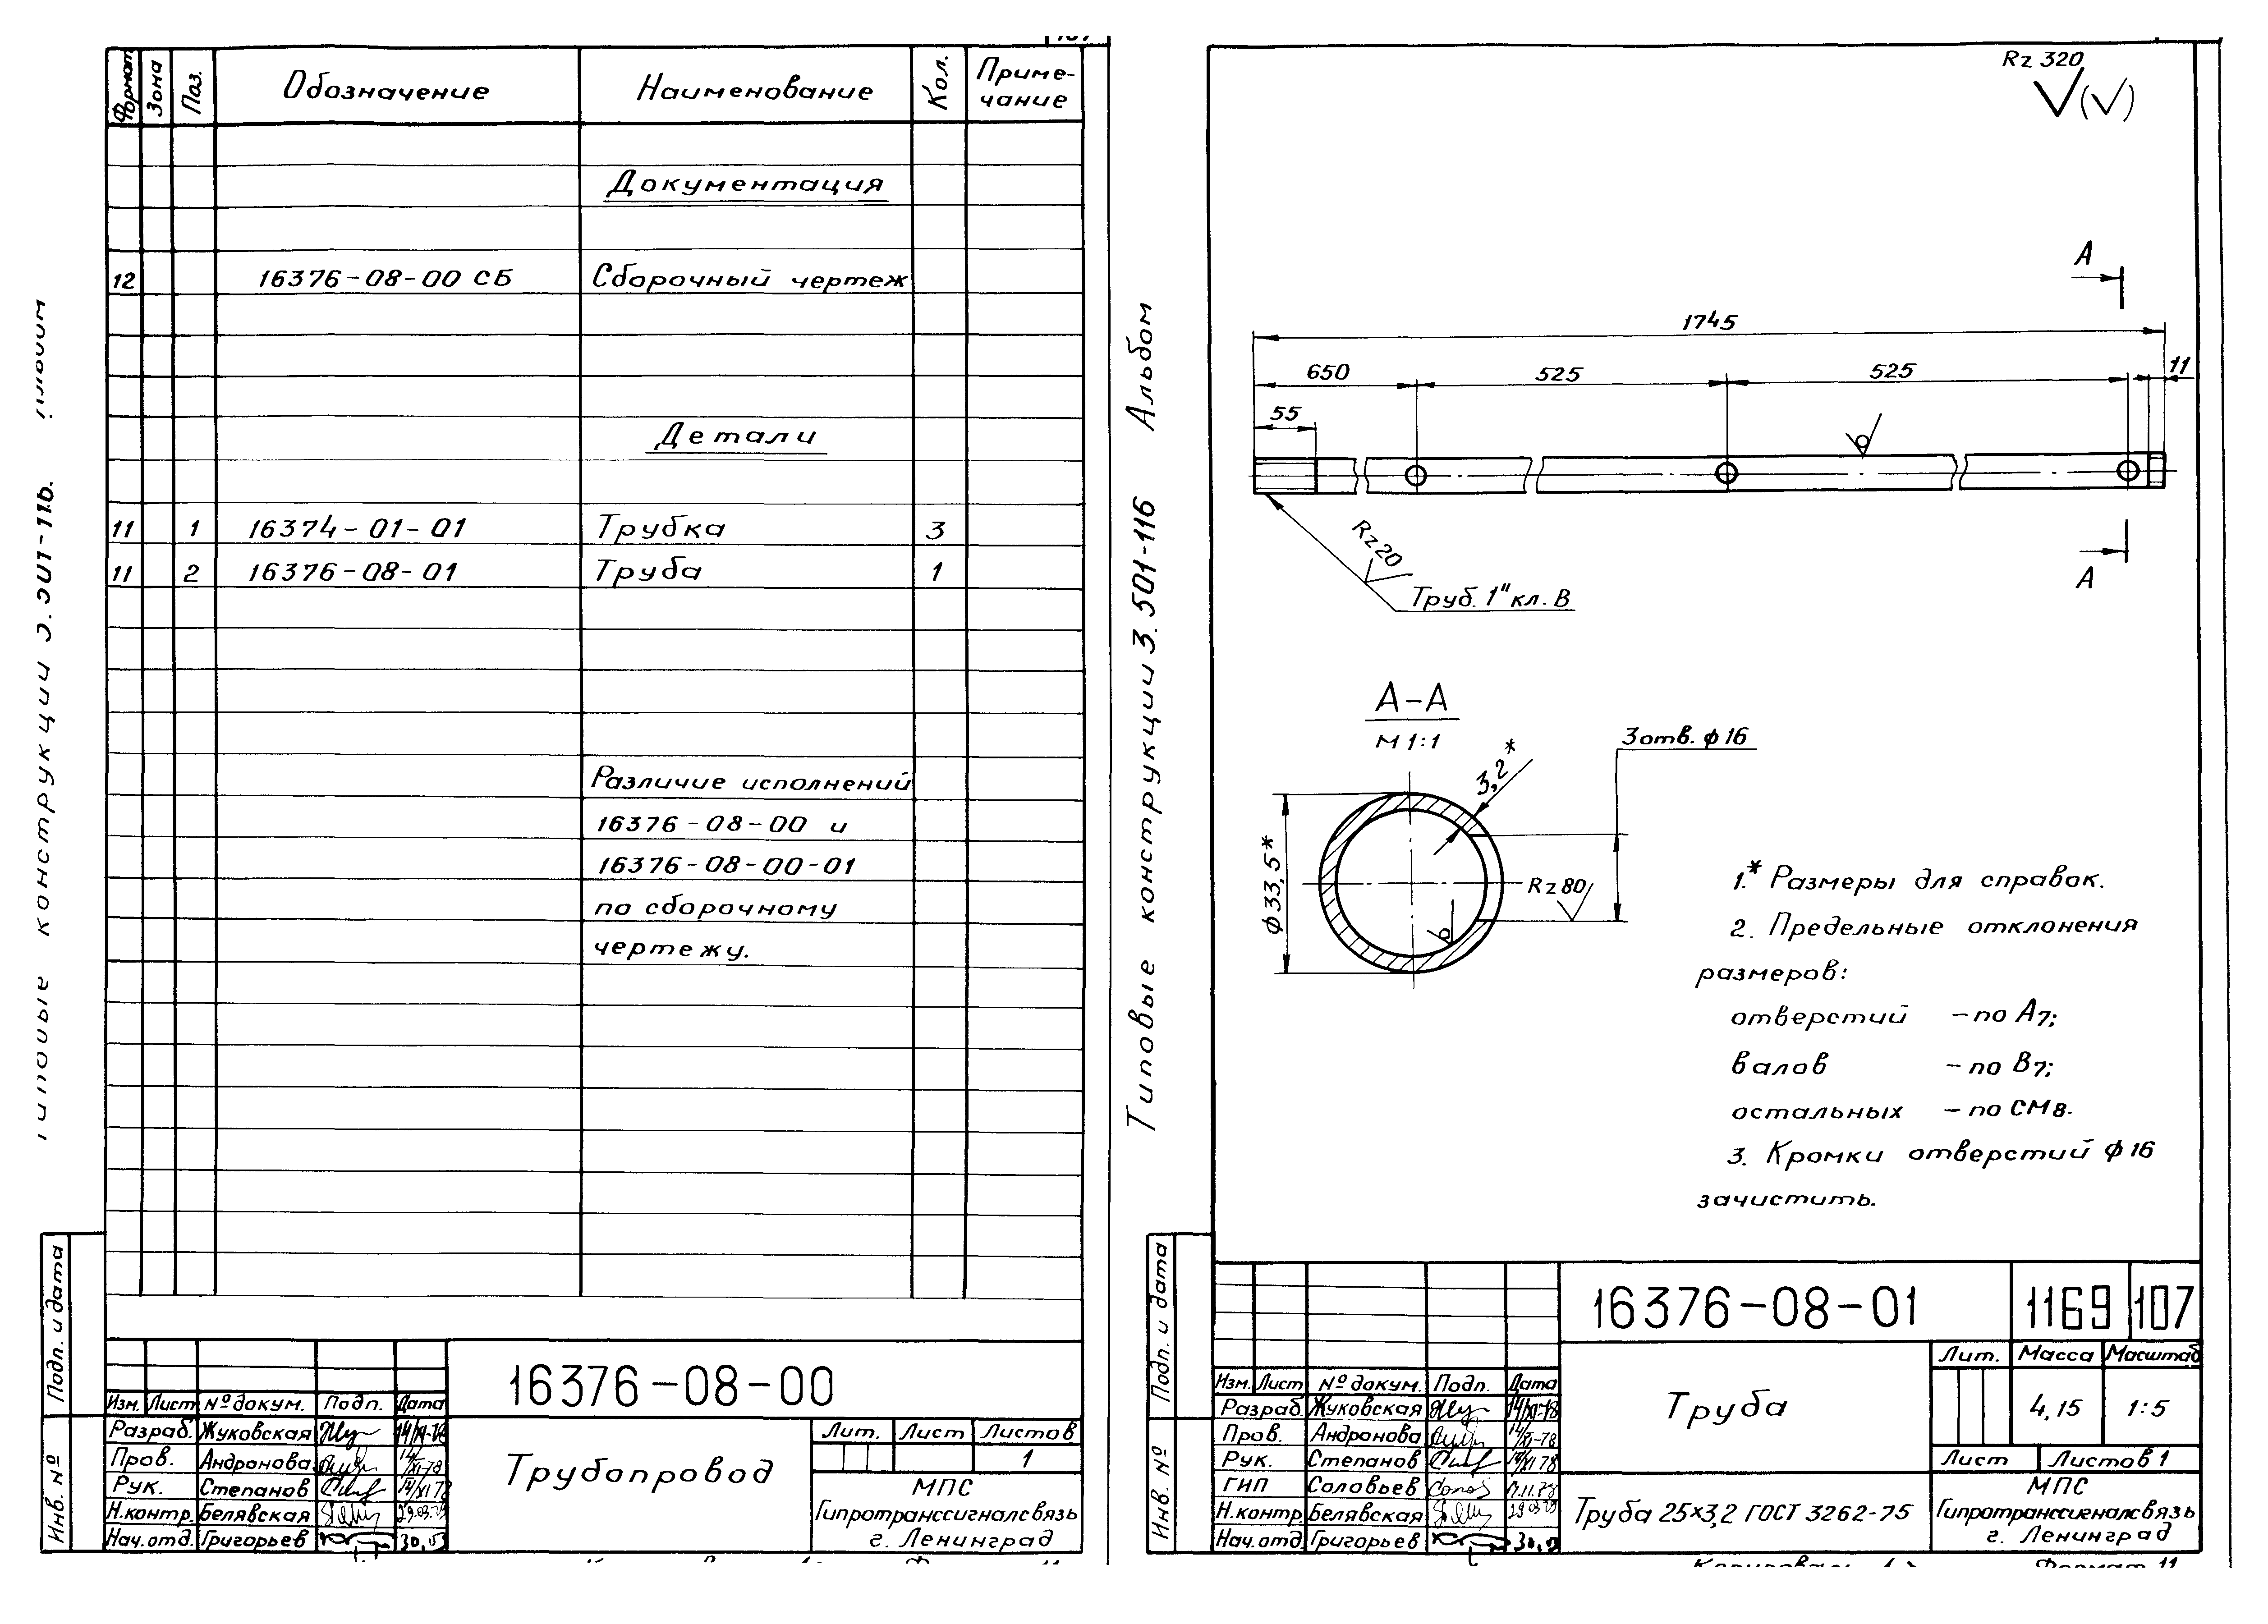 Формат Зона Поз. Обозначение Наименование Кол. Приме-
чание
Документация
12 16376-08-00 СБ Сборочный чертеж
Детали
11 1 16374-01-01 Трубка 3
11 2 16376-08-01 Труба 1
Различие исполнений
16376-08-00 и
16376-08-00-01
по сборочному
чертежу.
Подп. и дата
Инв. №
16376-08-00
Изм. Лист № докум. Подп. Дата
Разраб. Жуковская 14/XI-78
Пров. Андронова 14/XI-78
Рук. Степанов 14/XI 78
Н.контр. Белявская 29.03.79
Нач.отд. Григорьев
Трубопровод
Лит. Лист Листов
1
МПС
Гипротранссигналсвязь
г. Ленинград
Типовые конструкции 3.501-116 Альбом
Rz 320
А
1745
650 525 525 11
55
Rz 20
Труб. 1" кл. В
А
А-А
М 1:1
3 отв. ф 16
3,2*
ф 33,5*
Rz 80
1.* Размеры для справок.
2. Предельные отклонения
размеров:
отверстий - по А7;
валов - по В7;
остальных - по СМ8.
3. Кромки отверстий ф 16
зачистить.
Подп. и дата
Инв. №
16376-08-01 1169 107
Изм. Лист № докум. Подп. Дата
Разраб. Жуковская 14/XI-78
Пров. Андронова 14/XI-78
Рук. Степанов 14/XI 78
ГИП Соловьев
Н.контр. Белявская 29.03.79
Нач.отд. Григорьев
Труба
Лит. Масса Масштаб
4,15 1:5
Лист Листов 1
Труба 25×3,2 ГОСТ 3262-75
МПС
Гипротранссигналсвязь
г. Ленинград
Формат 11